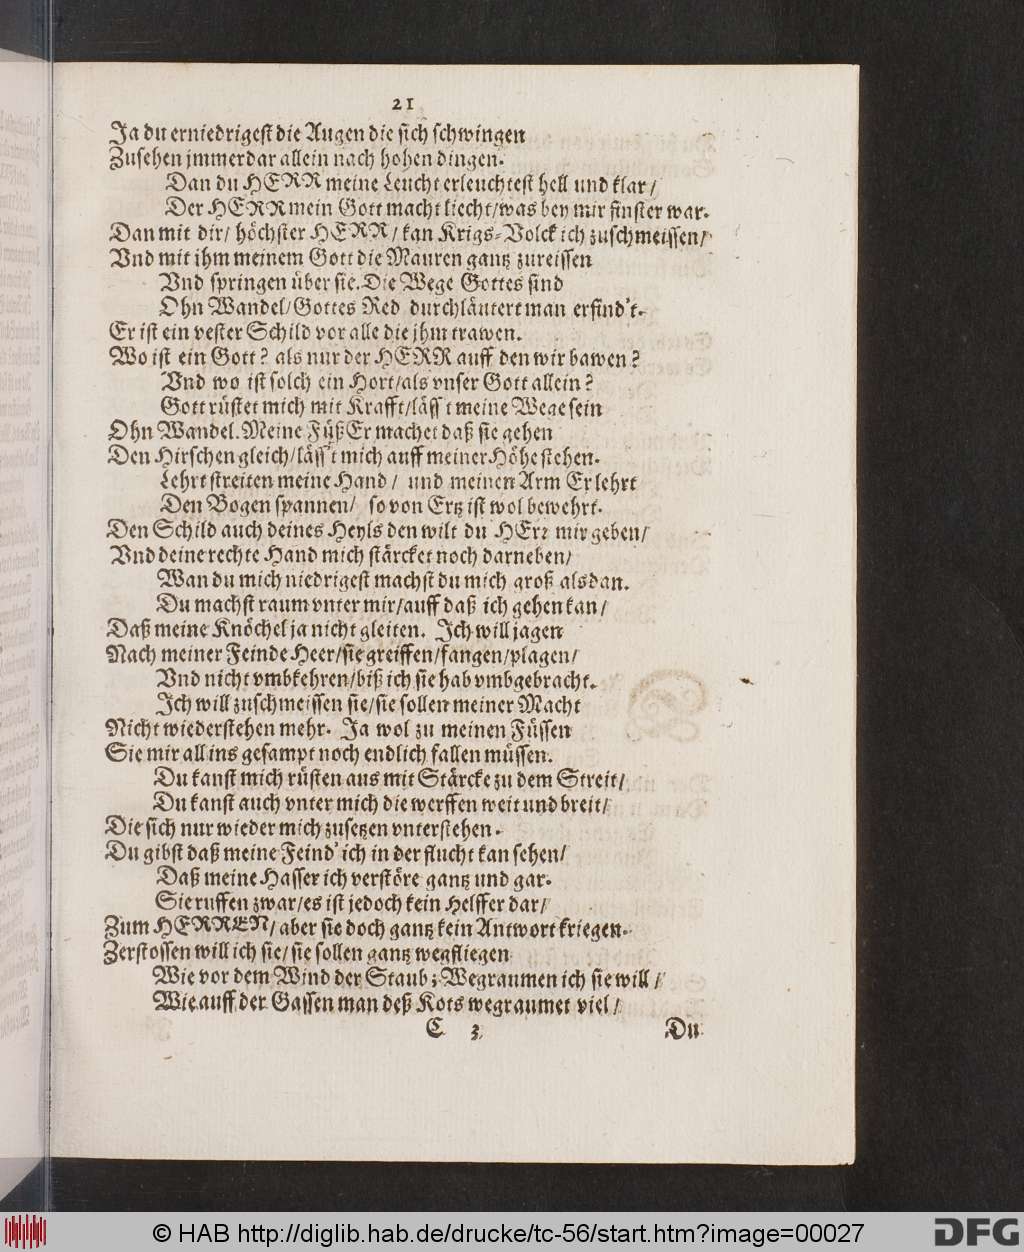 21
Ja du erniedrigest die Augen die sich schwingen
Zusehen jmmerdar allein nach hohen dingen.
Dan du HERR meine Leucht erleuchtest hell und klar/
Der HERR mein Gott macht liecht/was bey mir finster war.
Dan mit dir/ höchster HERR/ kan Krigs-Volck ich zuschmeissen/
Vnd mit ihm meinem Gott die Mauren gantz zureissen
Vnd springen über sie. Die Wege Gottes sind
Ohn Wandel/Gottes Red durchläutert man erfind't.
Er ist ein vester Schild vor alle die jhm trawen.
Wo ist ein Gott? als nur der HERR auff den wir bawen?
Vnd wo ist solch ein Hort/als vnser Gott allein?
Gott rüstet mich mit Krafft/läss't meine Wege sein
Ohn Wandel. Meine Füß Er machet daß sie gehen
Den Hirschen gleich/läss't mich auff meiner Höhe stehen.
Lehrt streiten meine Hand/ und meinen Arm Er lehrt
Den Bogen spannen/ so von Ertz ist wol bewehrt.
Den Schild auch deines Heyls den wilt du HErr mir geben/
Vnd deine rechte Hand mich stärcket noch darneben/
Wan du mich niedrigest machst du mich groß alsdan.
Du machst raum vnter mir/auff daß ich gehen kan/
Daß meine Knöchel ja nicht gleiten. Ich will jagen
Nach meiner Feinde Heer/sie greiffen/fangen/plagen/
Vnd nicht vmbkehren/biß ich sie hab vmbgebracht.
Ich will zuschmeissen sie/sie sollen meiner Macht
Nicht wiederstehen mehr. Ja wol zu meinen Füssen
Sie mir all ins gesampt noch endlich fallen müssen.
Du kanst mich rüsten aus mit Stärcke zu dem Streit/
Du kanst auch vnter mich die werffen weit und breit/
Die sich nur wieder mich zusetzen vnterstehen.
Du gibst daß meine Feind' ich in der flucht kan sehen/
Daß meine Hasser ich verstöre gantz und gar.
Sie ruffen zwar/es ist jedoch kein Helffer dar/
Zum HERREN/ aber sie doch gantz kein Antwort kriegen.
Zerstossen will ich sie/ sie sollen gantz wegfliegen
Wie vor dem Wind der Staub; Wegraumen ich sie will/
Wie auff der Gassen man deß Kots wegraumet viel/
C 3 Du
© HAB http://diglib.hab.de/drucke/tc-56/start.htm?image=00027
DFG